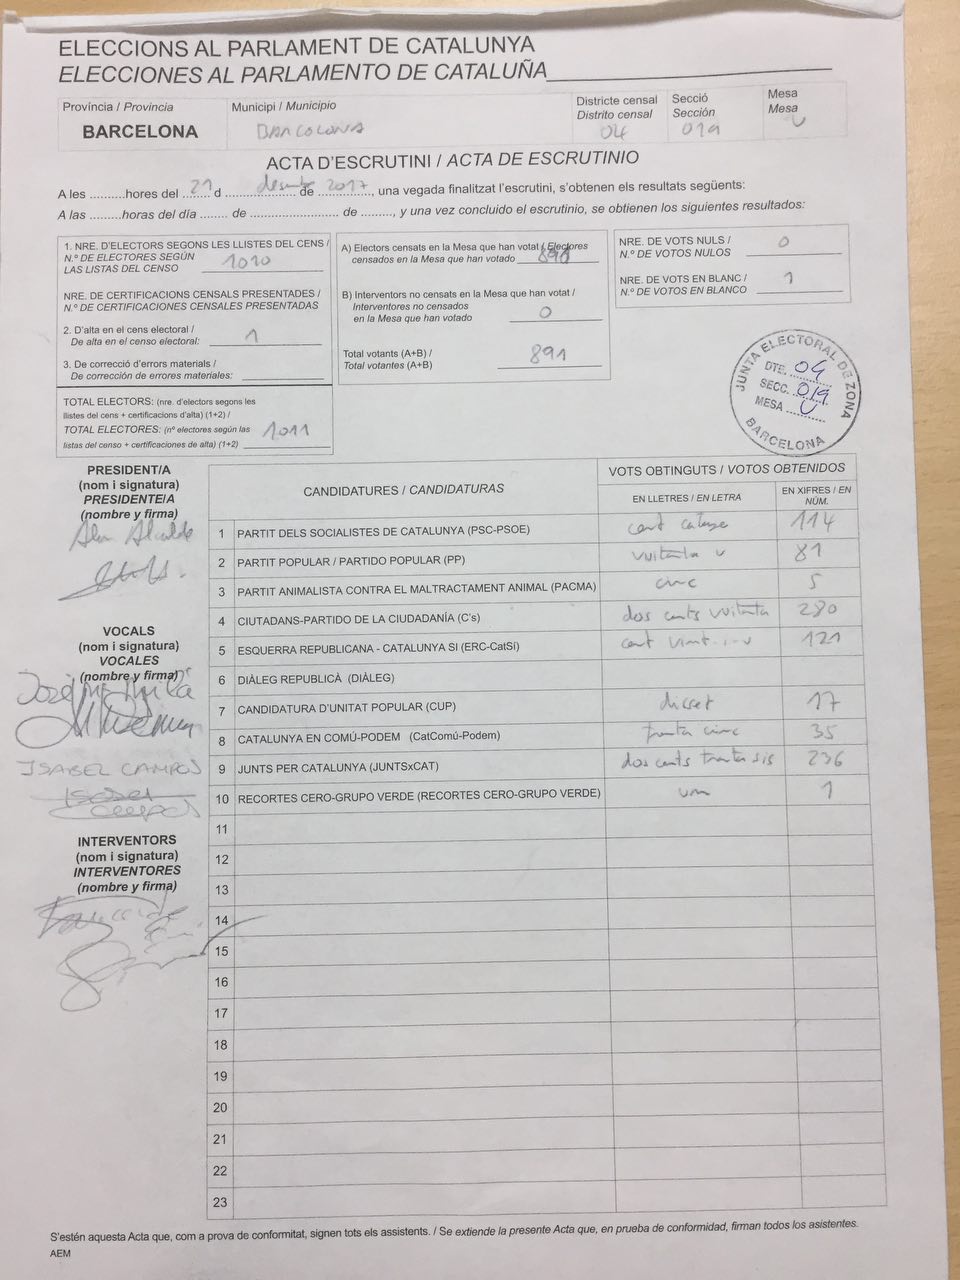 ELECCIONS AL PARLAMENT DE CATALUNYA
ELECCIONES AL PARLAMENTO DE CATALUÑA
Província / Provincia
BARCELONA
Municipi / Municipio
BARCOLONA
Districte censal
Distrito censal
04
Secció
Sección
019
Mesa
Mesa
U
ACTA D'ESCRUTINI / ACTA DE ESCRUTINIO
A les ..........hores del 21 d desembre de 2017, una vegada finalitzat l'escrutini, s'obtenen els resultats següents:
A las .........horas del día ........ de ........................ de ........., y una vez concluido el escrutinio, se obtienen los siguientes resultados:
1. NRE. D'ELECTORS SEGONS LES LLISTES DEL CENS /
N.º DE ELECTORES SEGÚN
LAS LISTAS DEL CENSO 1010
NRE. DE CERTIFICACIONS CENSALS PRESENTADES /
N.º DE CERTIFICACIONES CENSALES PRESENTADAS
2. D'alta en el cens electoral /
De alta en el censo electoral: 1
3. De correcció d'errors materials /
De corrección de errores materiales:
TOTAL ELECTORS: (nre. d'electors segons les
llistes del cens + certificacions d'alta) (1+2) /
TOTAL ELECTORES: (nº electores según las
listas del censo + certificaciones de alta) (1+2) 1011
A) Electors censats en la Mesa que han votat / Electores
censados en la Mesa que han votado 891
B) Interventors no censats en la Mesa que han votat /
Interventores no censados
en la Mesa que han votado 0
Total votants (A+B) /
Total votantes (A+B) 891
NRE. DE VOTS NULS /
N.º DE VOTOS NULOS 0
NRE. DE VOTS EN BLANC /
N.º DE VOTOS EN BLANCO 1
JUNTA ELECTORAL DE ZONA
DTE. 04
SECC. 019
MESA U
BARCELONA
PRESIDENT/A
(nom i signatura)
PRESIDENTE/A
(nombre y firma)
Alcalde
VOCALS
(nom i signatura)
VOCALES
(nombre y firma)
ISABEL CAMPOS
Isabel
Campos
INTERVENTORS
(nom i signatura)
INTERVENTORES
(nombre y firma)
CANDIDATURES / CANDIDATURAS
VOTS OBTINGUTS / VOTOS OBTENIDOS
EN LLETRES / EN LETRA
EN XIFRES / EN NÚM.
1 PARTIT DELS SOCIALISTES DE CATALUNYA (PSC-PSOE) cent catorze 114
2 PARTIT POPULAR / PARTIDO POPULAR (PP) vuitanta u 81
3 PARTIT ANIMALISTA CONTRA EL MALTRACTAMENT ANIMAL (PACMA) cinc 5
4 CIUTADANS-PARTIDO DE LA CIUDADANÍA (C's) dos cents vuitanta 280
5 ESQUERRA REPUBLICANA - CATALUNYA SI (ERC-CatSí) cent vint-i-u 121
6 DIÀLEG REPUBLICÀ (DIÀLEG)
7 CANDIDATURA D'UNITAT POPULAR (CUP) disset 17
8 CATALUNYA EN COMÚ-PODEM (CatComú-Podem) trenta cinc 35
9 JUNTS PER CATALUNYA (JUNTSxCAT) dos cents trenta sis 236
10 RECORTES CERO-GRUPO VERDE (RECORTES CERO-GRUPO VERDE) un 1
11
12
13
14
15
16
17
18
19
20
21
22
23
S'estén aquesta Acta que, com a prova de conformitat, signen tots els assistents. / Se extiende la presente Acta que, en prueba de conformidad, firman todos los asistentes.
AEM